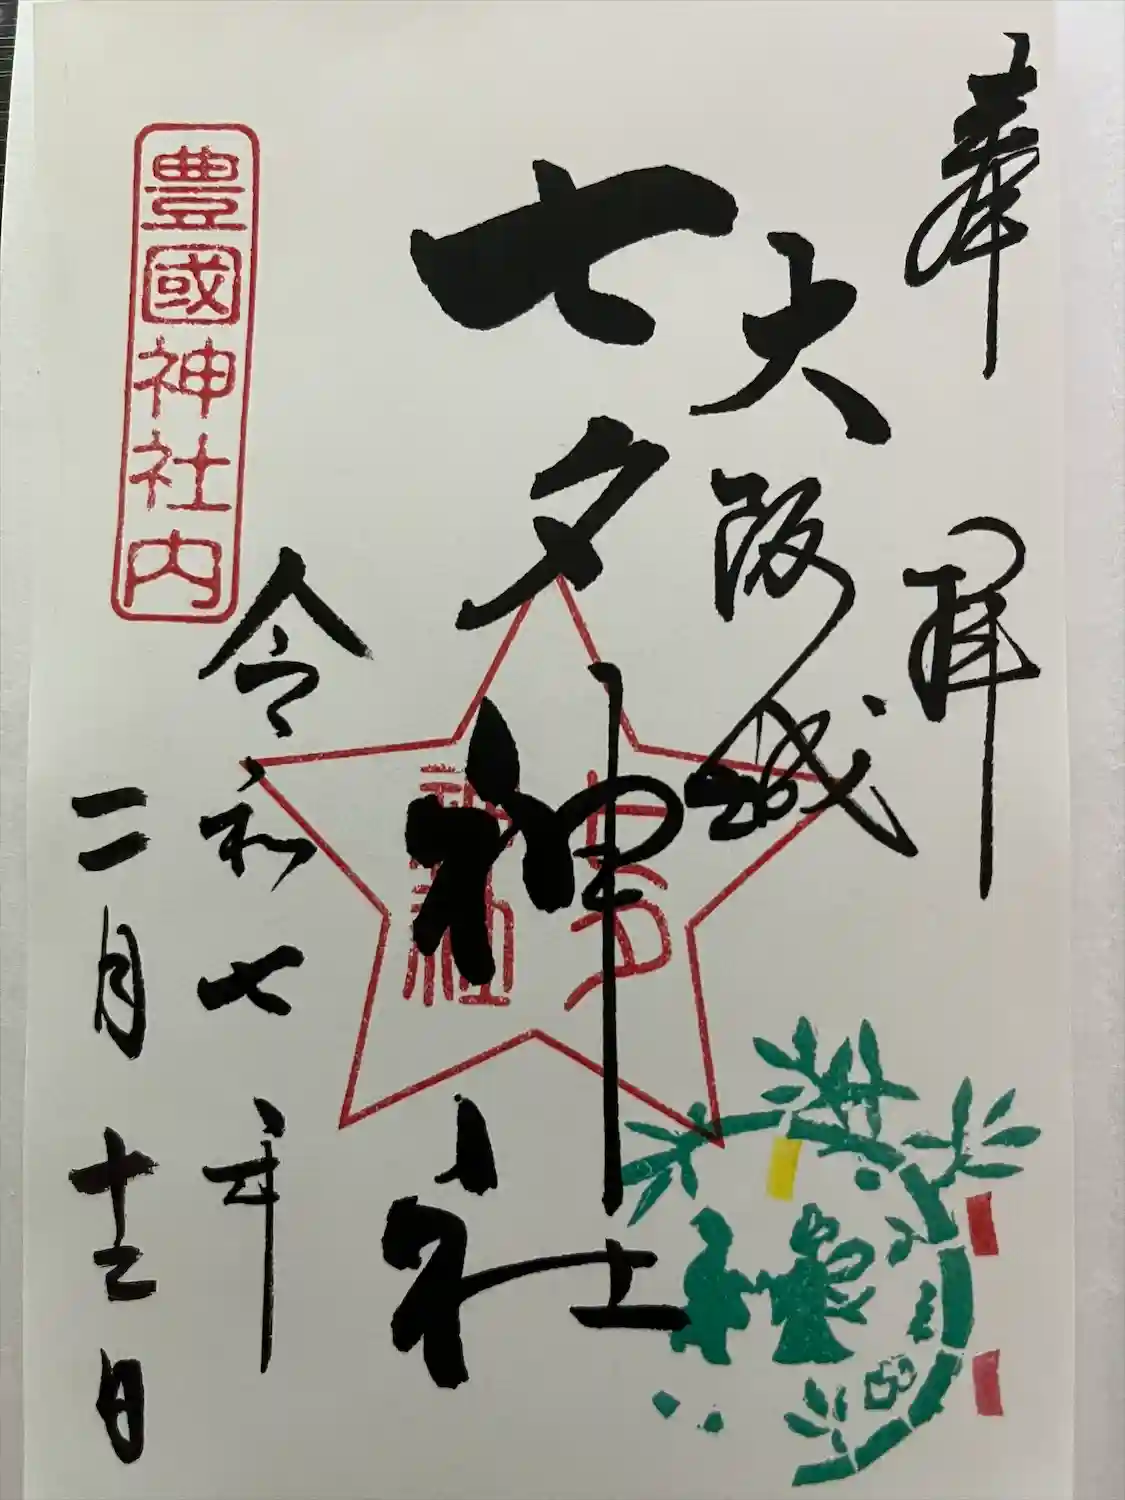 奉拝
大阪城
七夕神社
七夕
神社
豊國神社内
令和七年
二月十三日